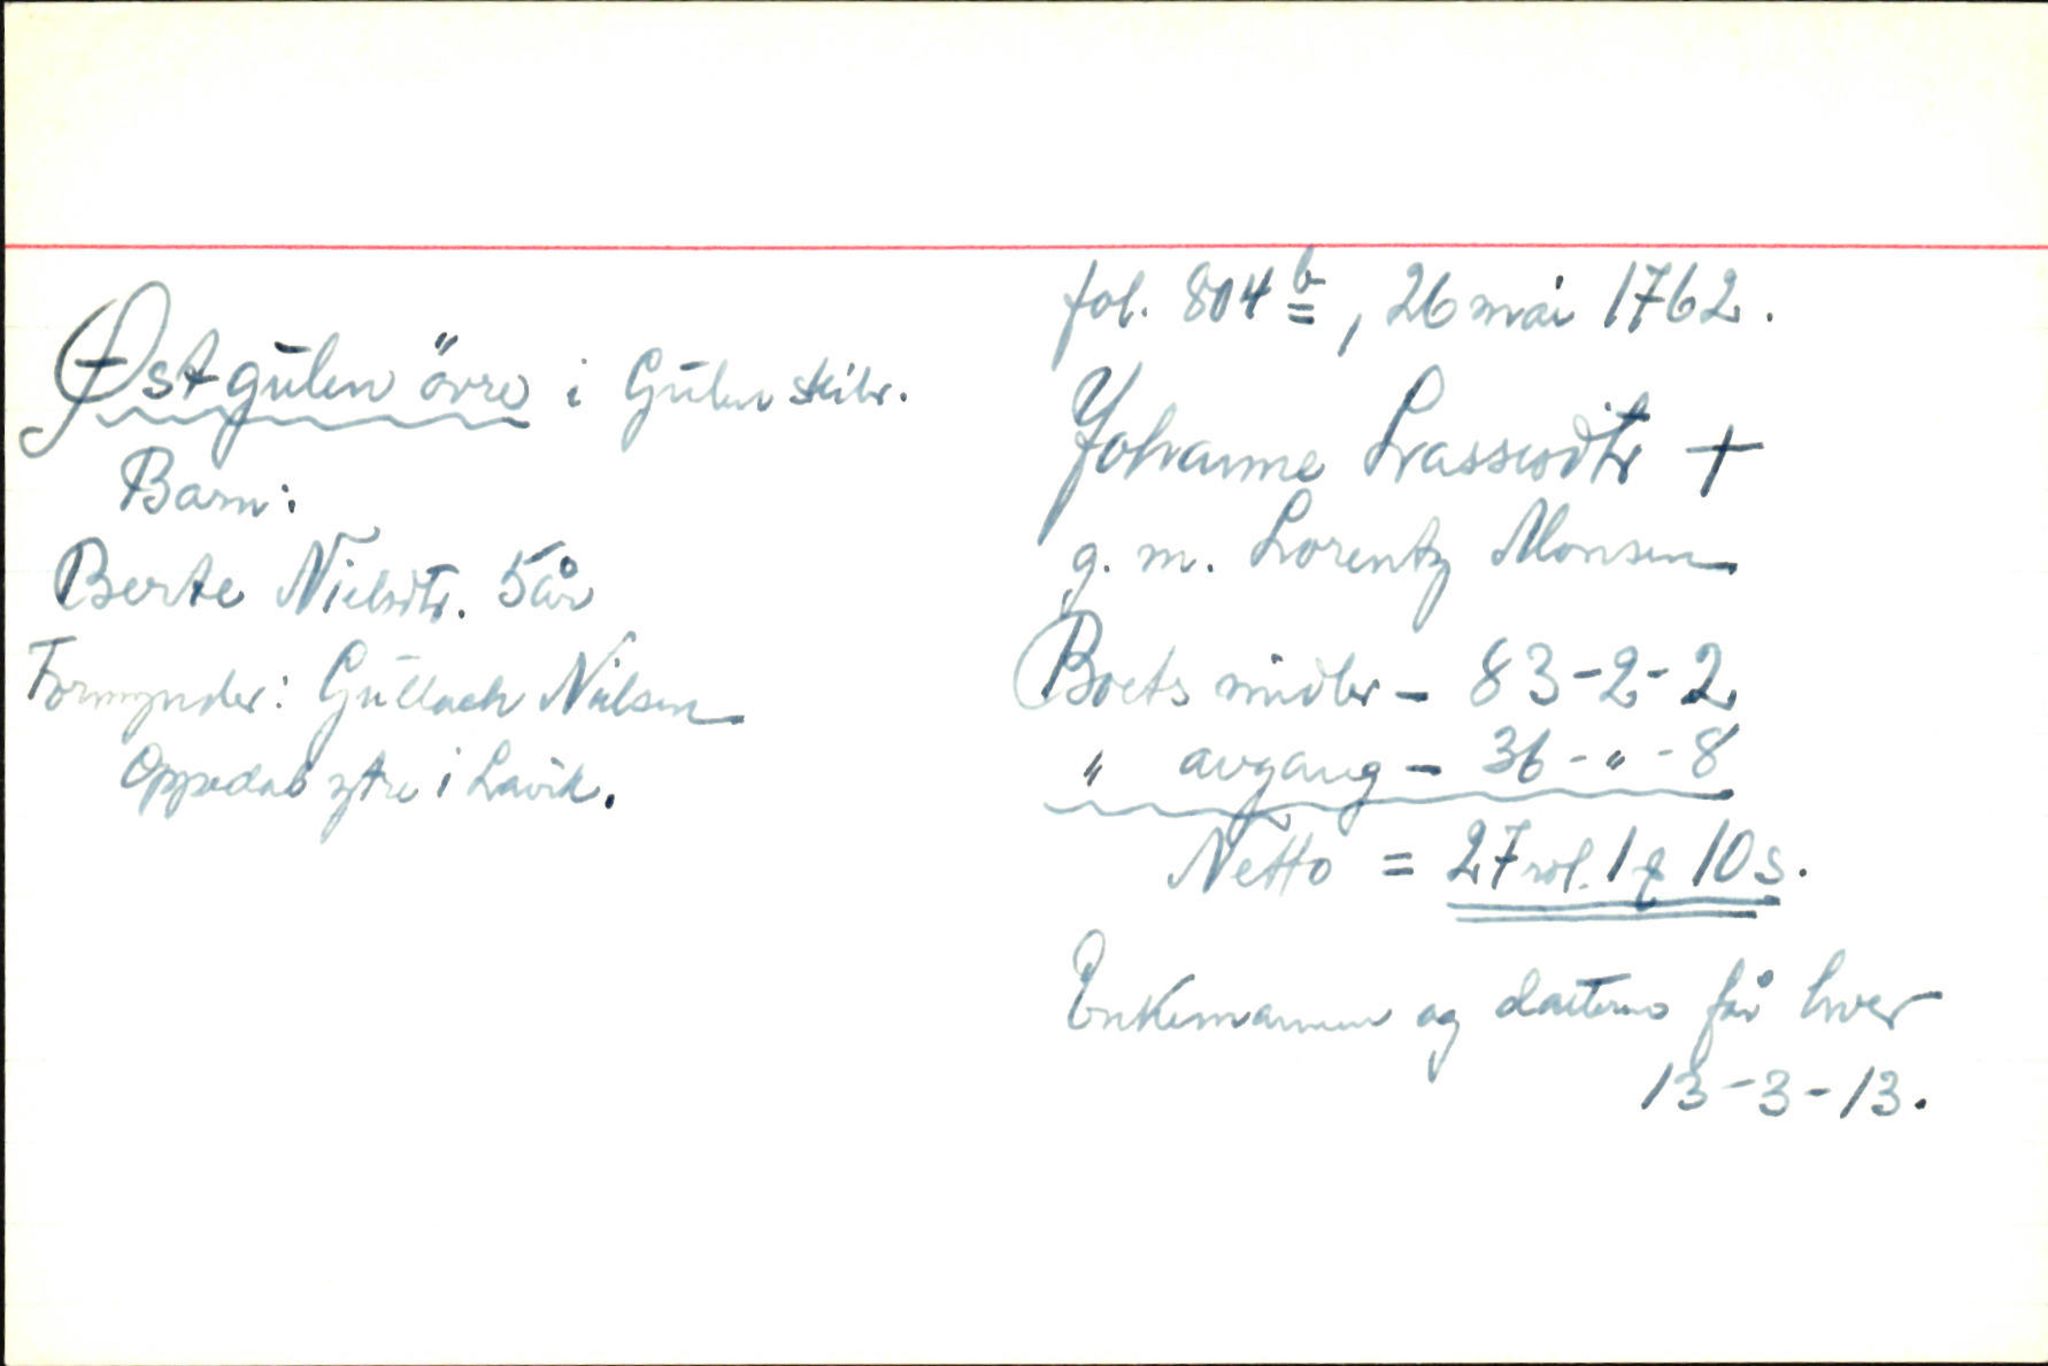 fol. 804 b, 26 mai 1762.
Østgulen övre i Gulen skibr.
Johanne Lassesdtr +
g. m. Lorentz Monsen
Barn:
Berte Nielsdtr. 5 år
Formynder: Gullach Nielsen
Oppedal ytre i Lavik.
Boets midler - 83-2-2
" avgang - 36-"-8
Netto = 27 rdl. 1 ƒ 10 s.
Enkemannen og datteren får hver
13-3-13.